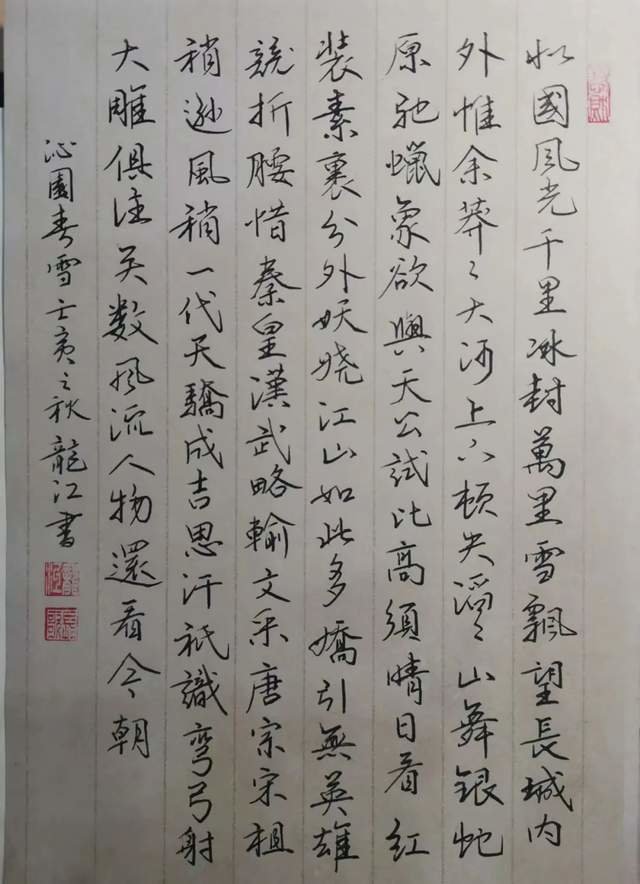 北國風光千里冰封萬里雪飄望長城内
外惟余莽々大河上下頓失滔々山舞銀蛇
原馳蠟象欲與天公試比高須晴日看紅
装素裹分外妖娆江山如此多嬌引無英雄
競折腰惜秦皇漢武略輸文采唐宗宋祖
稍遜風稍一代天驕成吉思汗祇識彎弓射
大雕俱往矣数風流人物還看今朝
沁園春雪己亥之秋龍江書